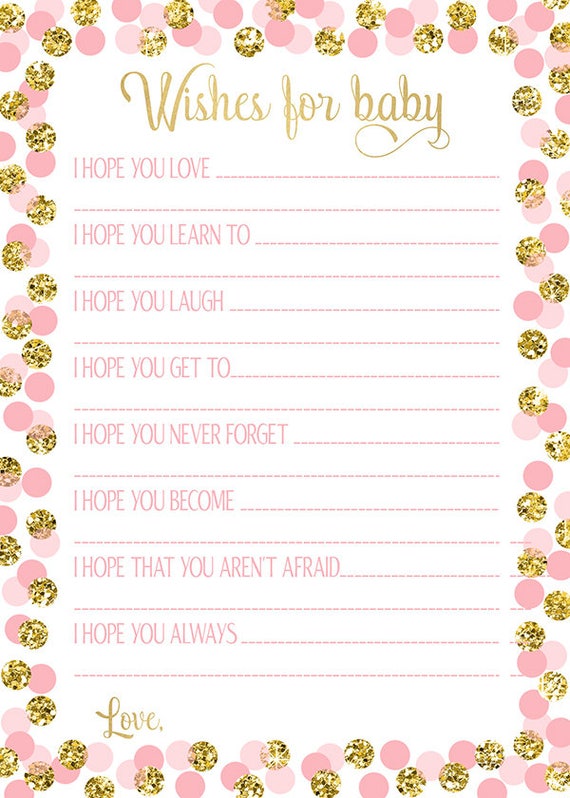 Wishes for baby
I HOPE YOU LOVE
I HOPE YOU LEARN TO
I HOPE YOU LAUGH
I HOPE YOU GET TO
I HOPE YOU NEVER FORGET
I HOPE YOU BECOME
I HOPE THAT YOU AREN'T AFRAID
I HOPE YOU ALWAYS
Love,